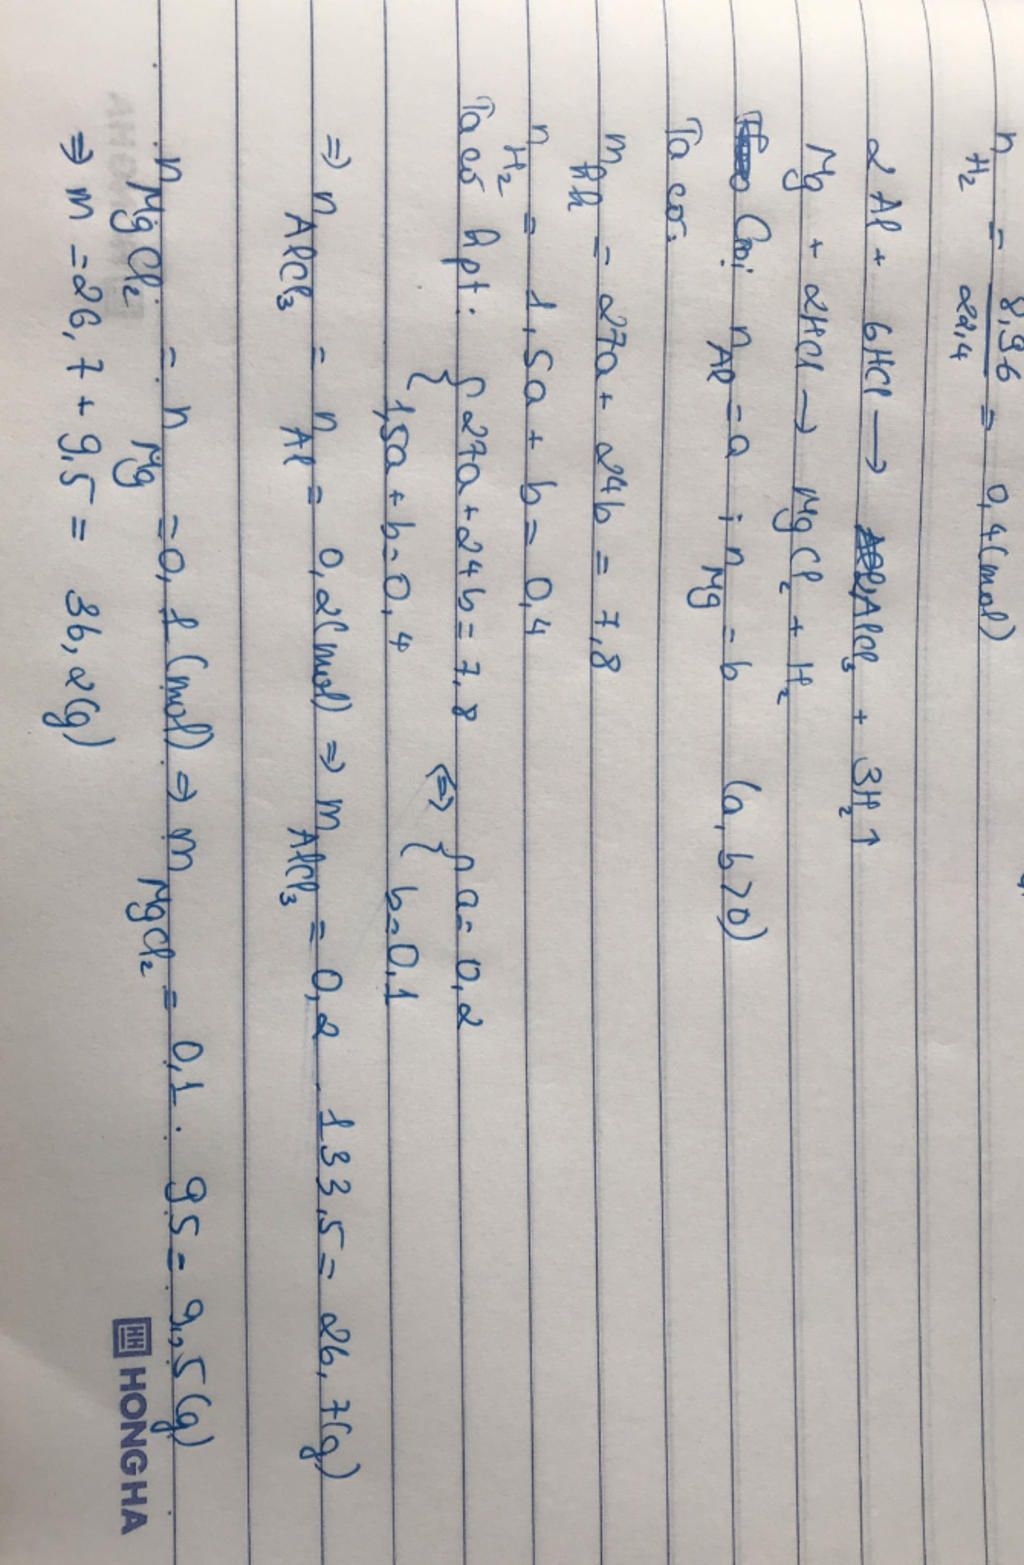 n H₂ = 8,96/22,4 = 0,4 (mol)
2Al + 6HCl → AlCl₃ + 3H₂↑
Mg + 2HCl → MgCl₂ + H₂
Gọi n Al = a ; n Mg = b (a, b > 0)
Ta có:
m hh = 27a + 24b = 7,8
n H₂ = 1,5a + b = 0,4
Ta có hpt: { 27a + 24b = 7,8 <=> { a = 0,2
1,5a + b = 0,4 b = 0,1
=> n AlCl₃ = n Al = 0,2 (mol) => m AlCl₃ = 0,2 . 133,5 = 26,7 (g)
n MgCl₂ = n Mg = 0,1 (mol) => m MgCl₂ = 0,1 . 95 = 9,5 (g)
=> m = 26,7 + 9,5 = 36,2 (g)
HH HONG HA